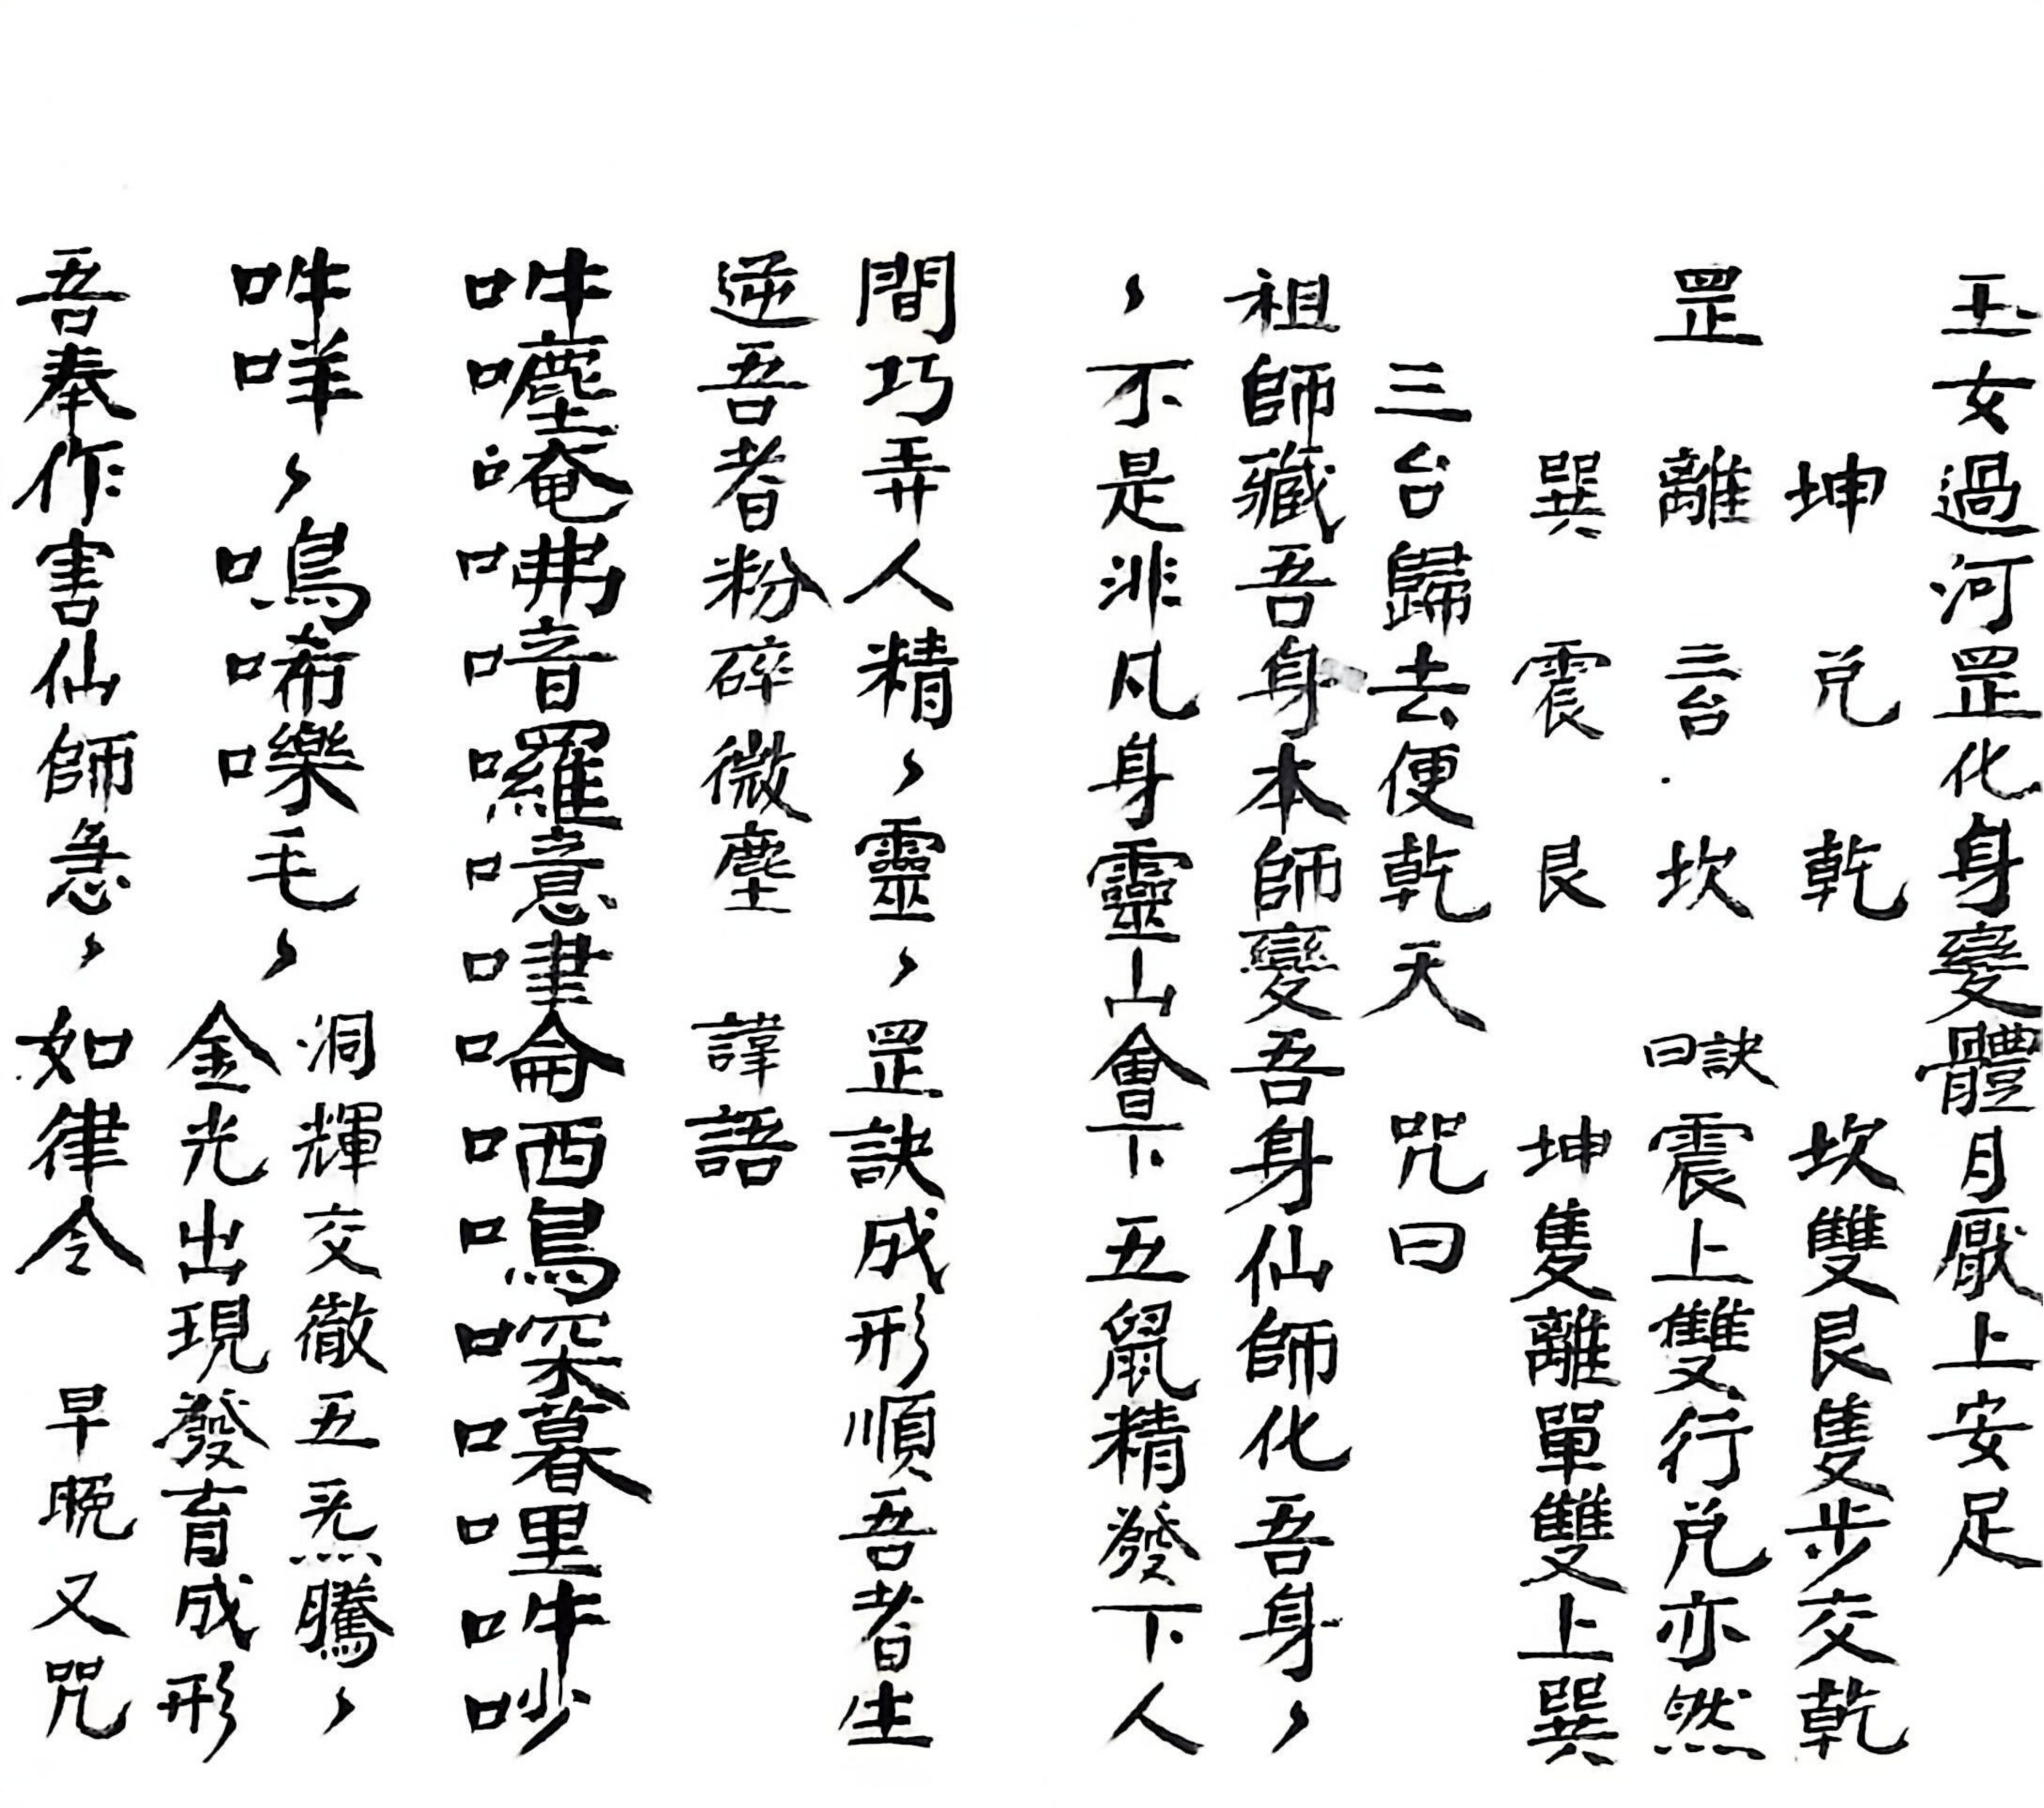 玉女過河罡化身变體月厭上安足
坤 兑 乾 坎雙艮隻步交乾
罡 離 三台 坎 訣曰 震上雙行兑亦然
巽 震 艮 坤隻離單雙上巽
三台歸去便乾天 咒曰
祖師藏吾身本師變吾身仙師化吾身〻
〻不是非凡身靈山會下五鼠精發下人
間巧弄人精〻靈〻罡訣成形順吾者生
逆吾者粉碎微塵 諱語
吽㘆唵咈喑囉噫嗺㖮哂嗚㗎嚗哩吽吵
吽咩〻嗚唏嚛毛〻 洞輝交徹五炁騰〻
金光出現發育成形
吾奉作害仙師急〻如律令 早晚又咒